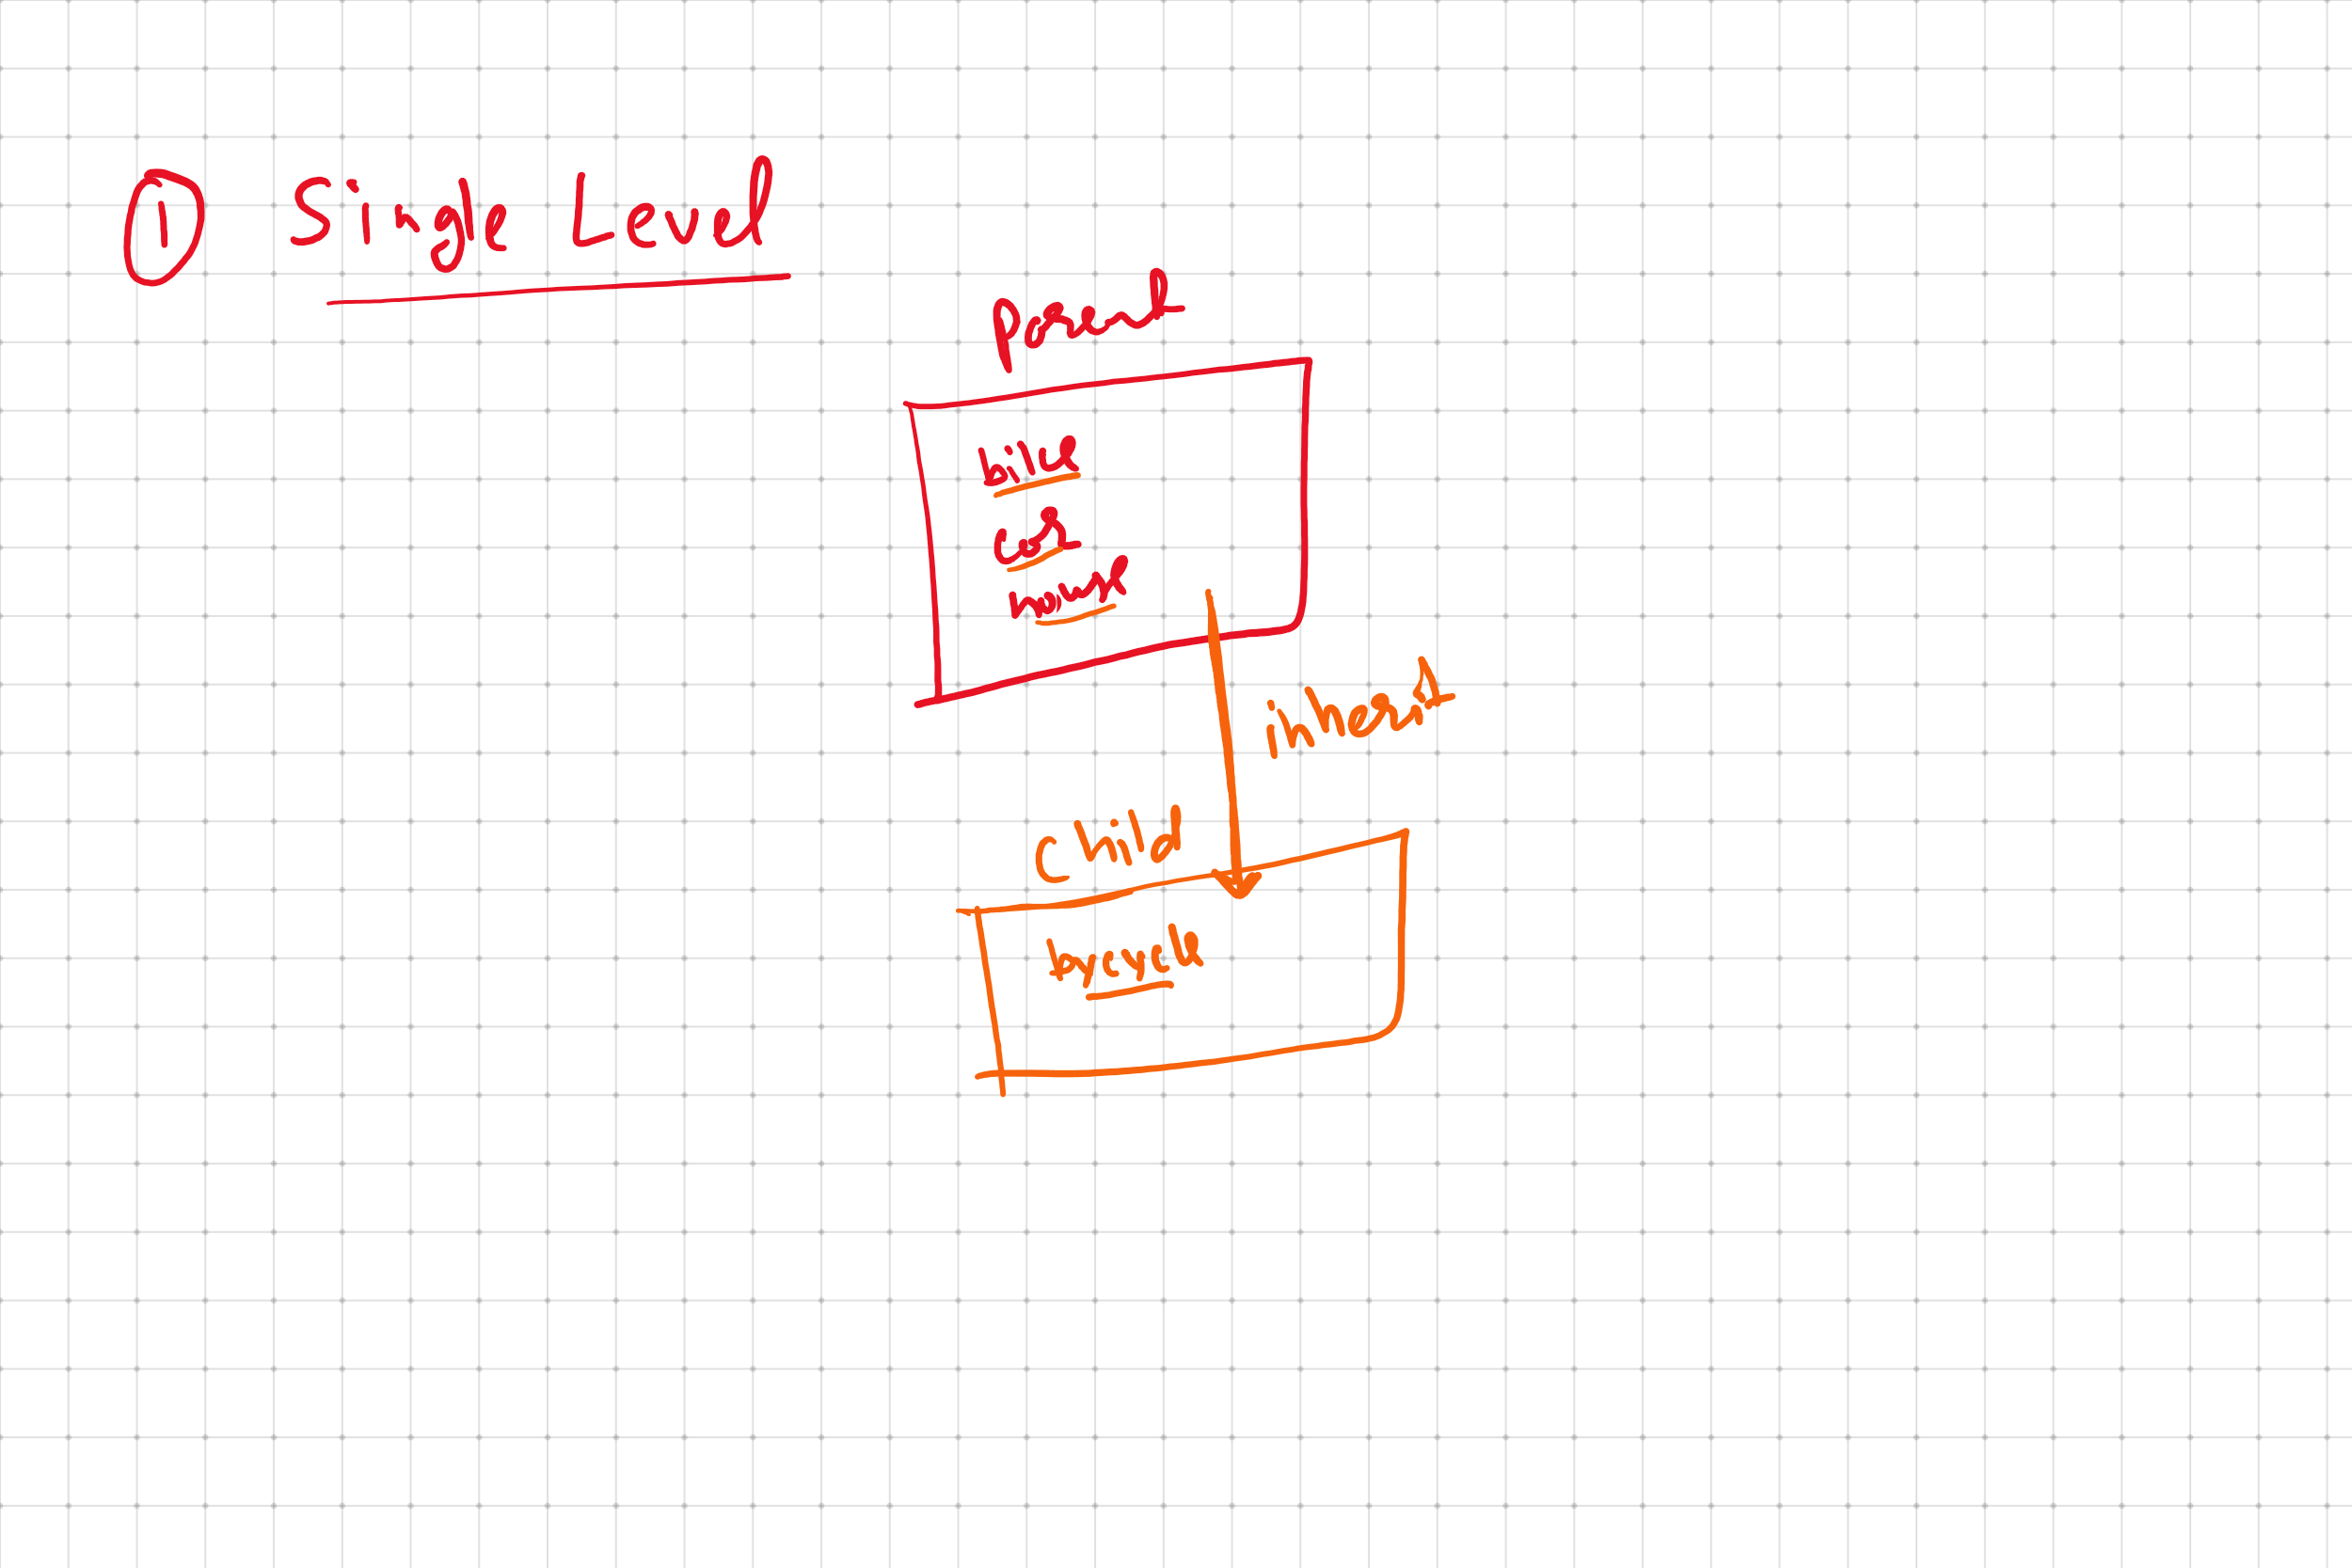 ① Single Level
parent
bike
car
house
inherit
child
bycycle